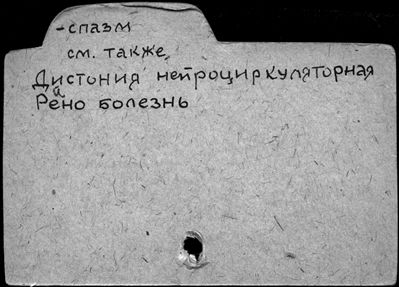 -спазм
см. также
Дистония нейроциркуляторная
Рейно болезнь